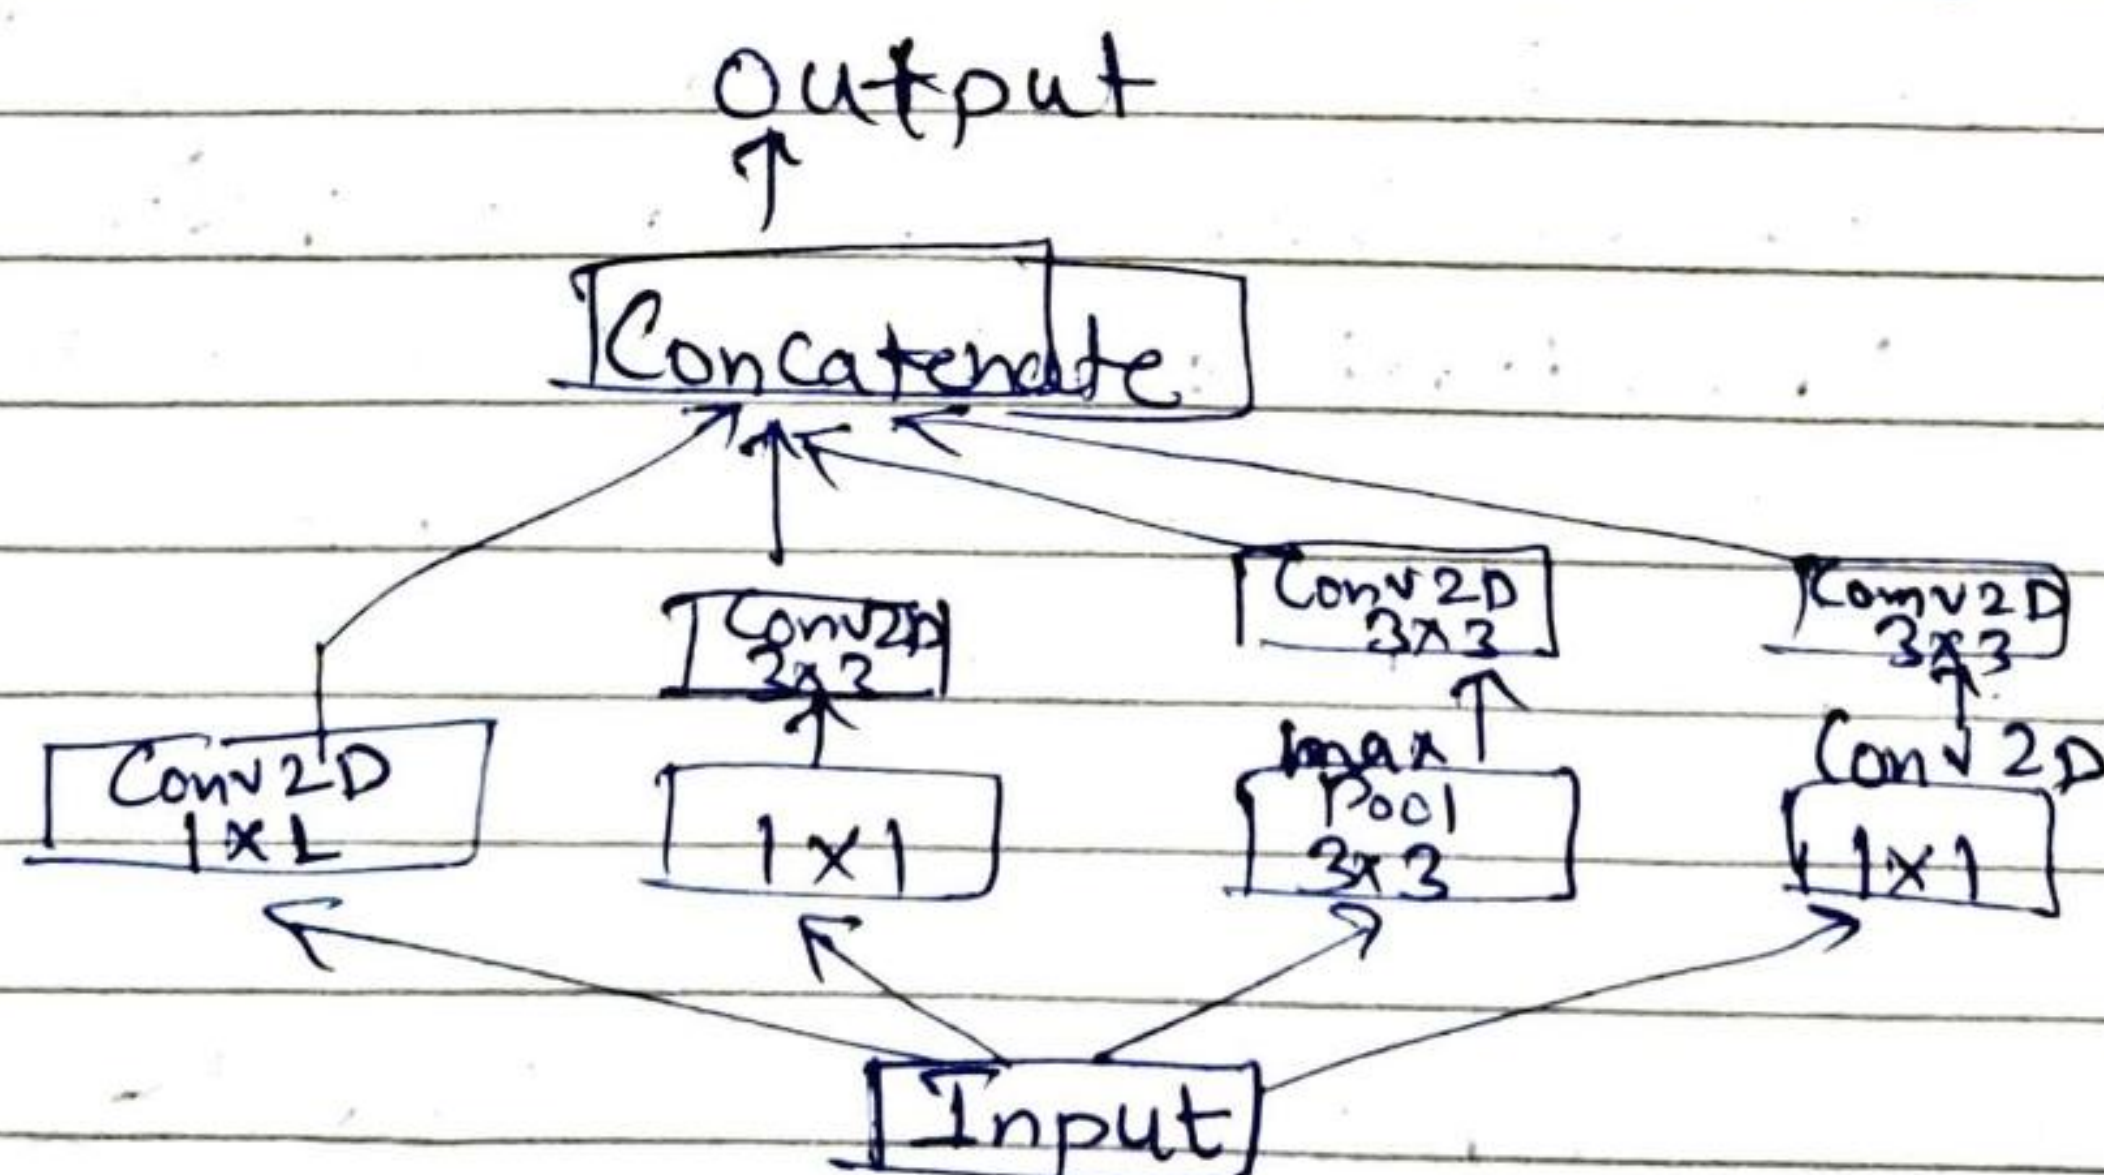 Output
Concatenate
Conv2D
3x3
Conv2D
3x3
Conv2D
3x3
Conv2D
1x1
1x1
max
Pool
3x3
Conv2D
1x1
Input